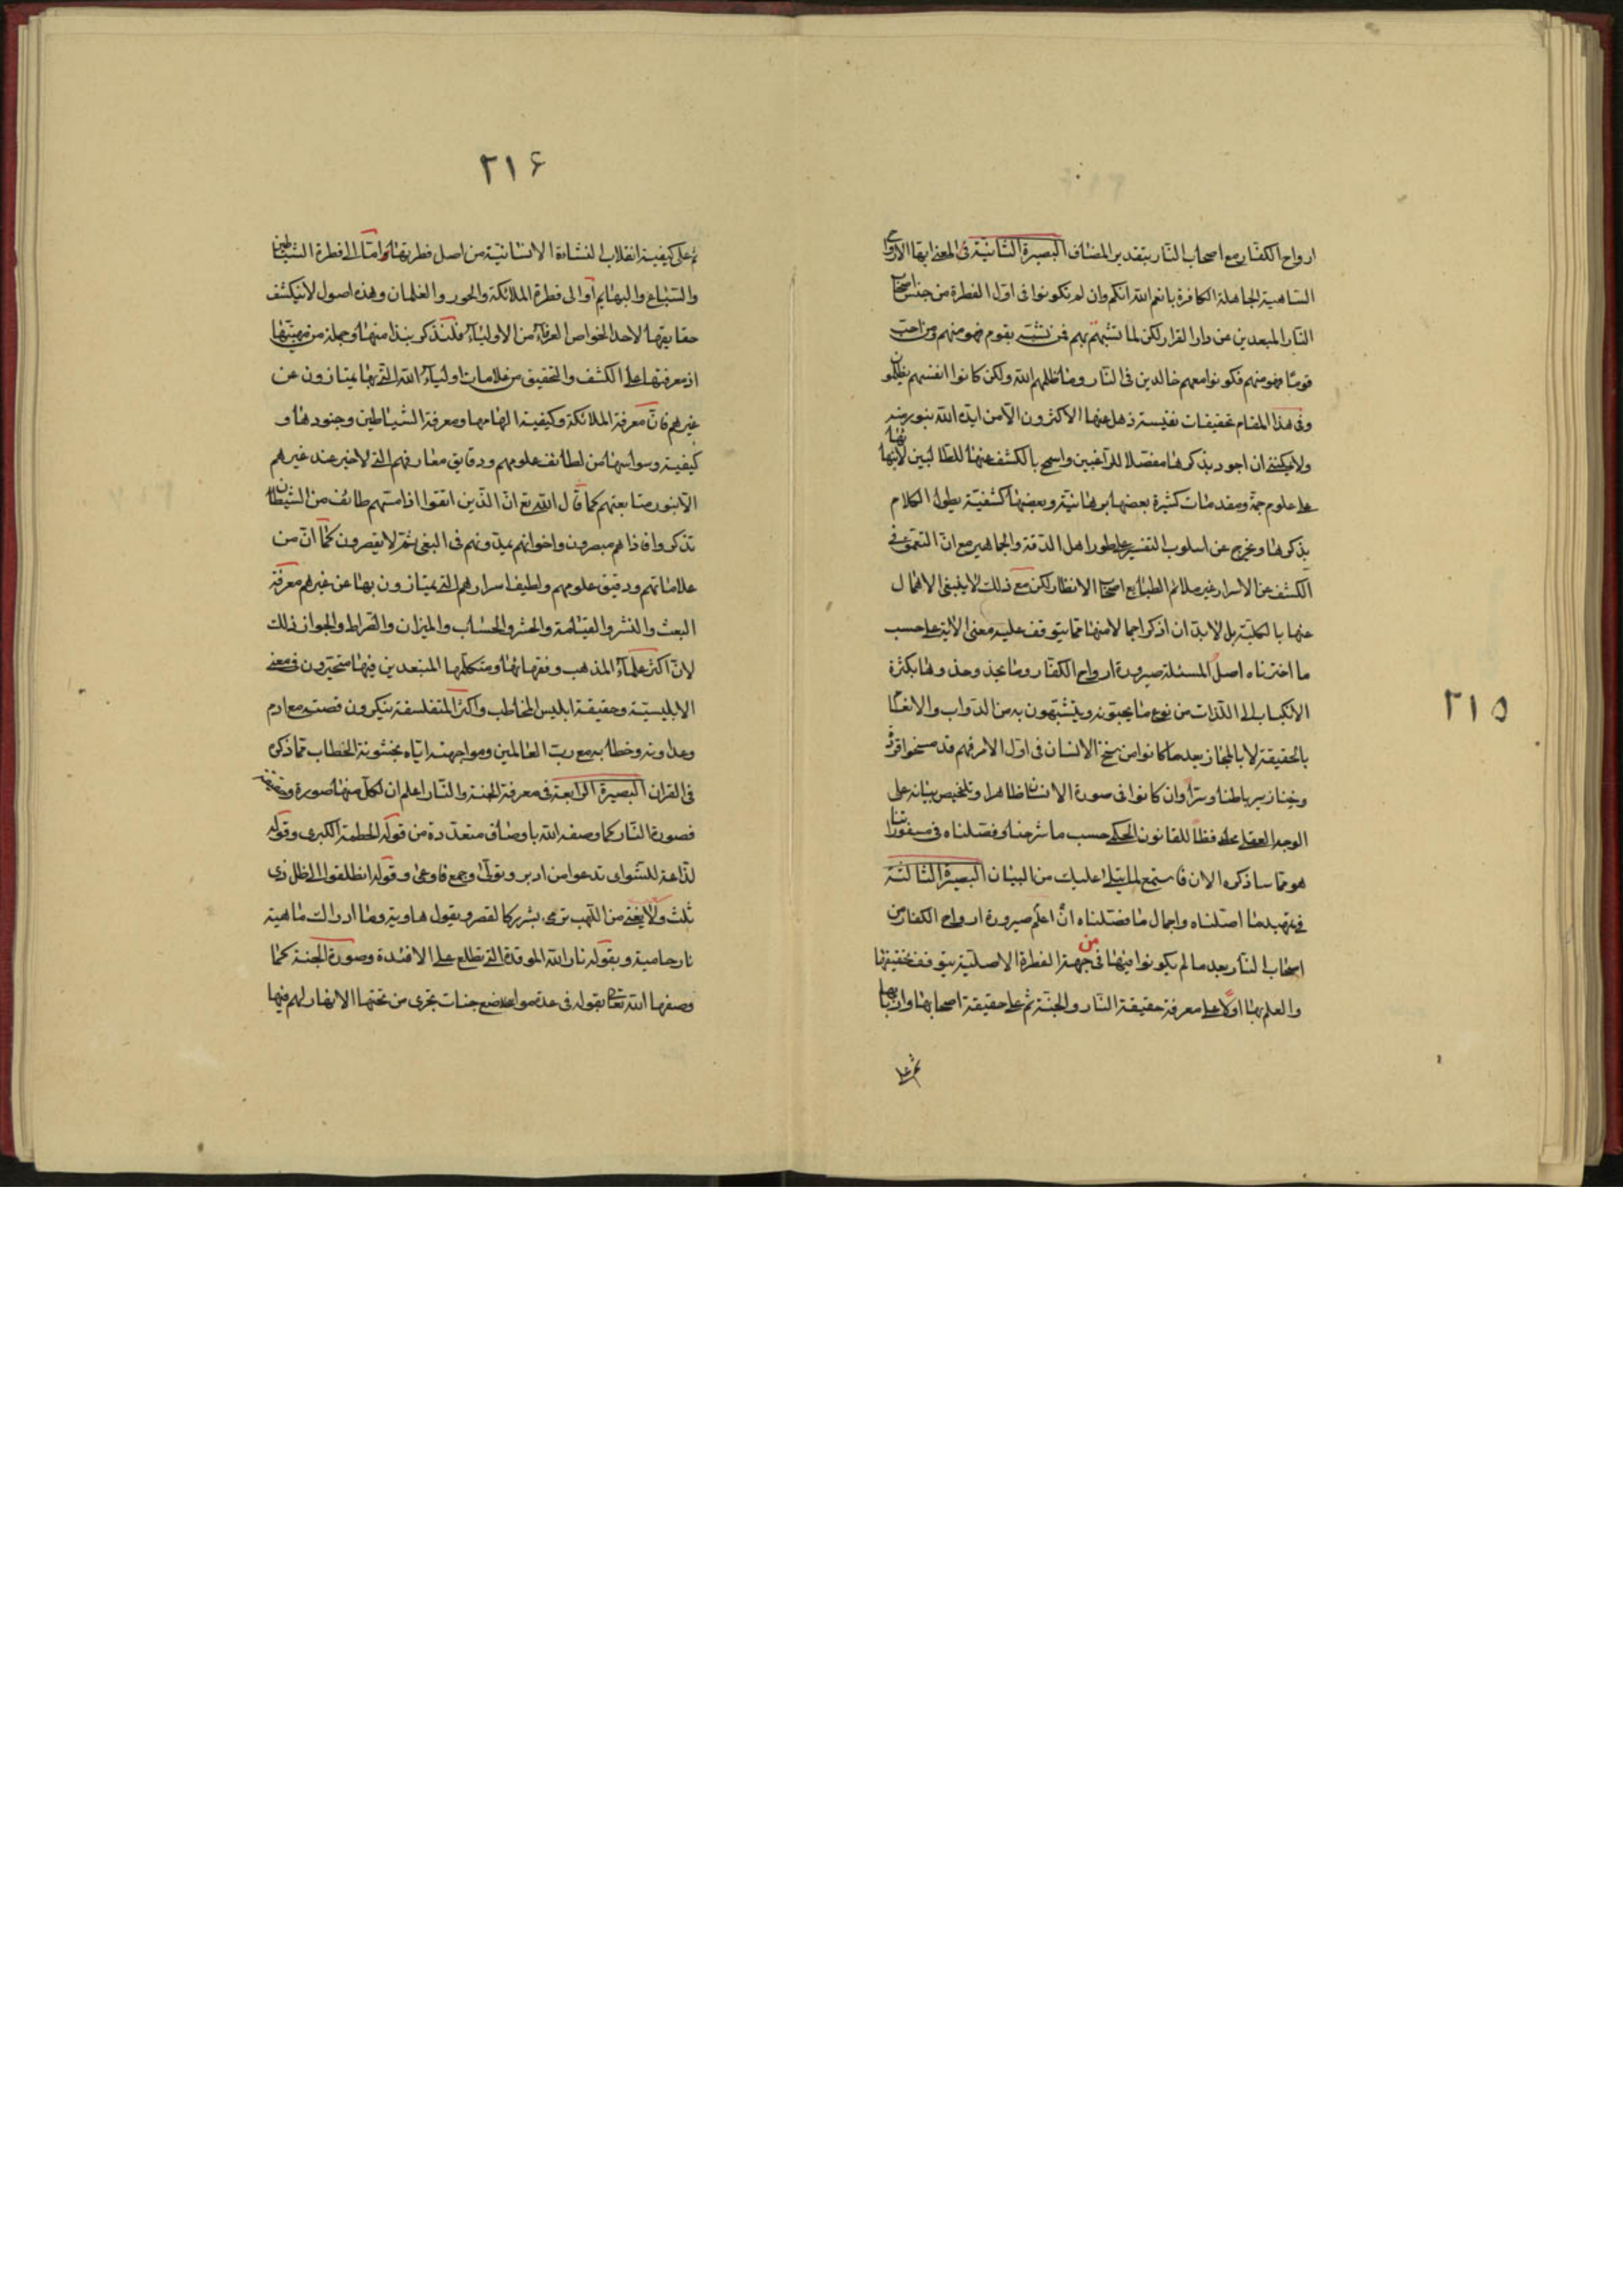 ٢١٥
ارواح الكفار مع اصحاب النار بتقدير المضاف البصيرة الثانية فى المعنى ايتها الارواح
الساهية الجاهلة الكافرة بانعم الله انكم وان لم تكونوا فى اول الفطرة من جنس اصحاب
النار المبعدين عن دار القرار لكن لما تشبهتم بهم فمن تشبه بقوم فهو منهم ومن احب
قوما فهو منهم فكونوا معهم خالدين فى النار وما ظلمهم الله ولكن كانوا انفسهم يظلمون
وفى هذا المقام تحقيقات نفيسة ذهل عنها الاكثرون الا من ايده الله بنور منه
ولا يمكننى ان اجود بذكرها مفصلا للراغبين واسمح بالكشف عنها للطالبين لابتنائها
على علوم جمة ومقدمات كثيرة بعضها برهانية وبعضها كشفية يطول الكلام
بذكرها ويخرج عن اسلوب التفسير على طور اهل الدقة والجماهير مع ان التعمق فى
الكشف عن الاسرار غير ملائم الطبايع اصحاب الانظار لكن مع ذلك لا ينبغى الاهمال
عنها بالكلية بل لابد ان اذكر اجمالا منها مما يتوقف عليه معنى الاية على حسب
ما اخترناه اصل المسئلة صيرورة ارواح الكفار وما يحذو حذوها بكثرة
الانكباب الى اللذات من نوع ما يحبونه ويتشبهون به من الدواب والانعام
بالحقيقة لا بالمجاز بعد ما كانوا من سنخ الانسان فى اول الامر فهم قد مسخوا قردة
وخنازير باطنا وسرا وان كانوا فى صورة الانسان ظاهرا وتلخيص بيانه على
الوجه العقلى محافظا للقانون الحكمى حسب ما شرحناه وفصلناه فى مسفوراتنا
هو مما ساذكره الان فاستمع لما يتلى عليك من البيان البصيرة الثالثة
فى تمهيد ما اصلناه واجمال ما فصلناه ان اعلم صيرورة ارواح الكفار من
اصحاب النار بعد ما لم يكونوا منها فى من جهة الفطرة الاصلية يتوقف تحقيقها
والعلم بها اولا على معرفة حقيقة النار والجنة ثم على حقيقة اصحابها واربابها
ثم على
٢١۶
ثم على كيفية انقلاب النشاءة الانسانية من اصل فطرتها واما الى فطرة الشياطين
والسباع والبهايم او الى فطرة الملائكة والحور والغلمان وهذه اصول لا ينكشف
حقايقها لاحد الخواص العرفاء من الاولياء فلنذكر نبذا منها وجملة من
اذ معرفتها على الكشف والتحقيق من علامات اولياء الله التى بها يمتازون عن
غيرهم فان معرفة الملائكة وكيفية الهامها ومعرفة الشياطين وجنودها و
كيفية وسواسها من لطائف علومهم ودقايق معارفهم التى لا خبر عند غيرهم
الا بنور متابعتهم كما قال الله تع ان الذين اتقوا اذا مستهم طائف من الشيطان
تذكروا فاذا هم مبصرون واخوانهم يمدونهم فى الغى ثم لا يقصرون كما ان من
علاماتهم ودقيق علومهم ولطيف اسرارهم التى يمتازون بها عن غيرهم معرفة
البعث والنشر والقيامة والحشر والحساب والميزان والصراط والجواز ذلك
لان اكثر علماء المذهب وفقهائها ومتكلميها المتبعدين فيها متحيرون فى معنى
الابليسية وحقيقة ابليس المخاطب واكثر المتفلسفة ينكرون قصته مع ادم
وعداوته وخطابه مع رب العالمين ومواجهته اياه بخشونة الخطاب مما ذكر
فى القران البصيرة الرابعة فى معرفة الجنة والنار اعلم ان لكل منها صورة وحقيقة
فصورة النار كما وصفه الله باوصاف متعددة من قوله الحطمة الكبرى وقوله
لذاعة للشوى تدعوا من ادبر وتولى وجمع فاوعى وقوله انطلقوا الى ظل ذى
ثلث ولا يغنى من اللهب ترمى بشرر كالقصر ويقول هاوية وما ادراك ماهية
نار حامية وبقوله نار الله الموقدة التى تطلع على الافئدة وصورة الجنة كما
وصفها الله تعالى بقوله فى عدة مواضع جنات تجرى من تحتها الانهار لهم فيها